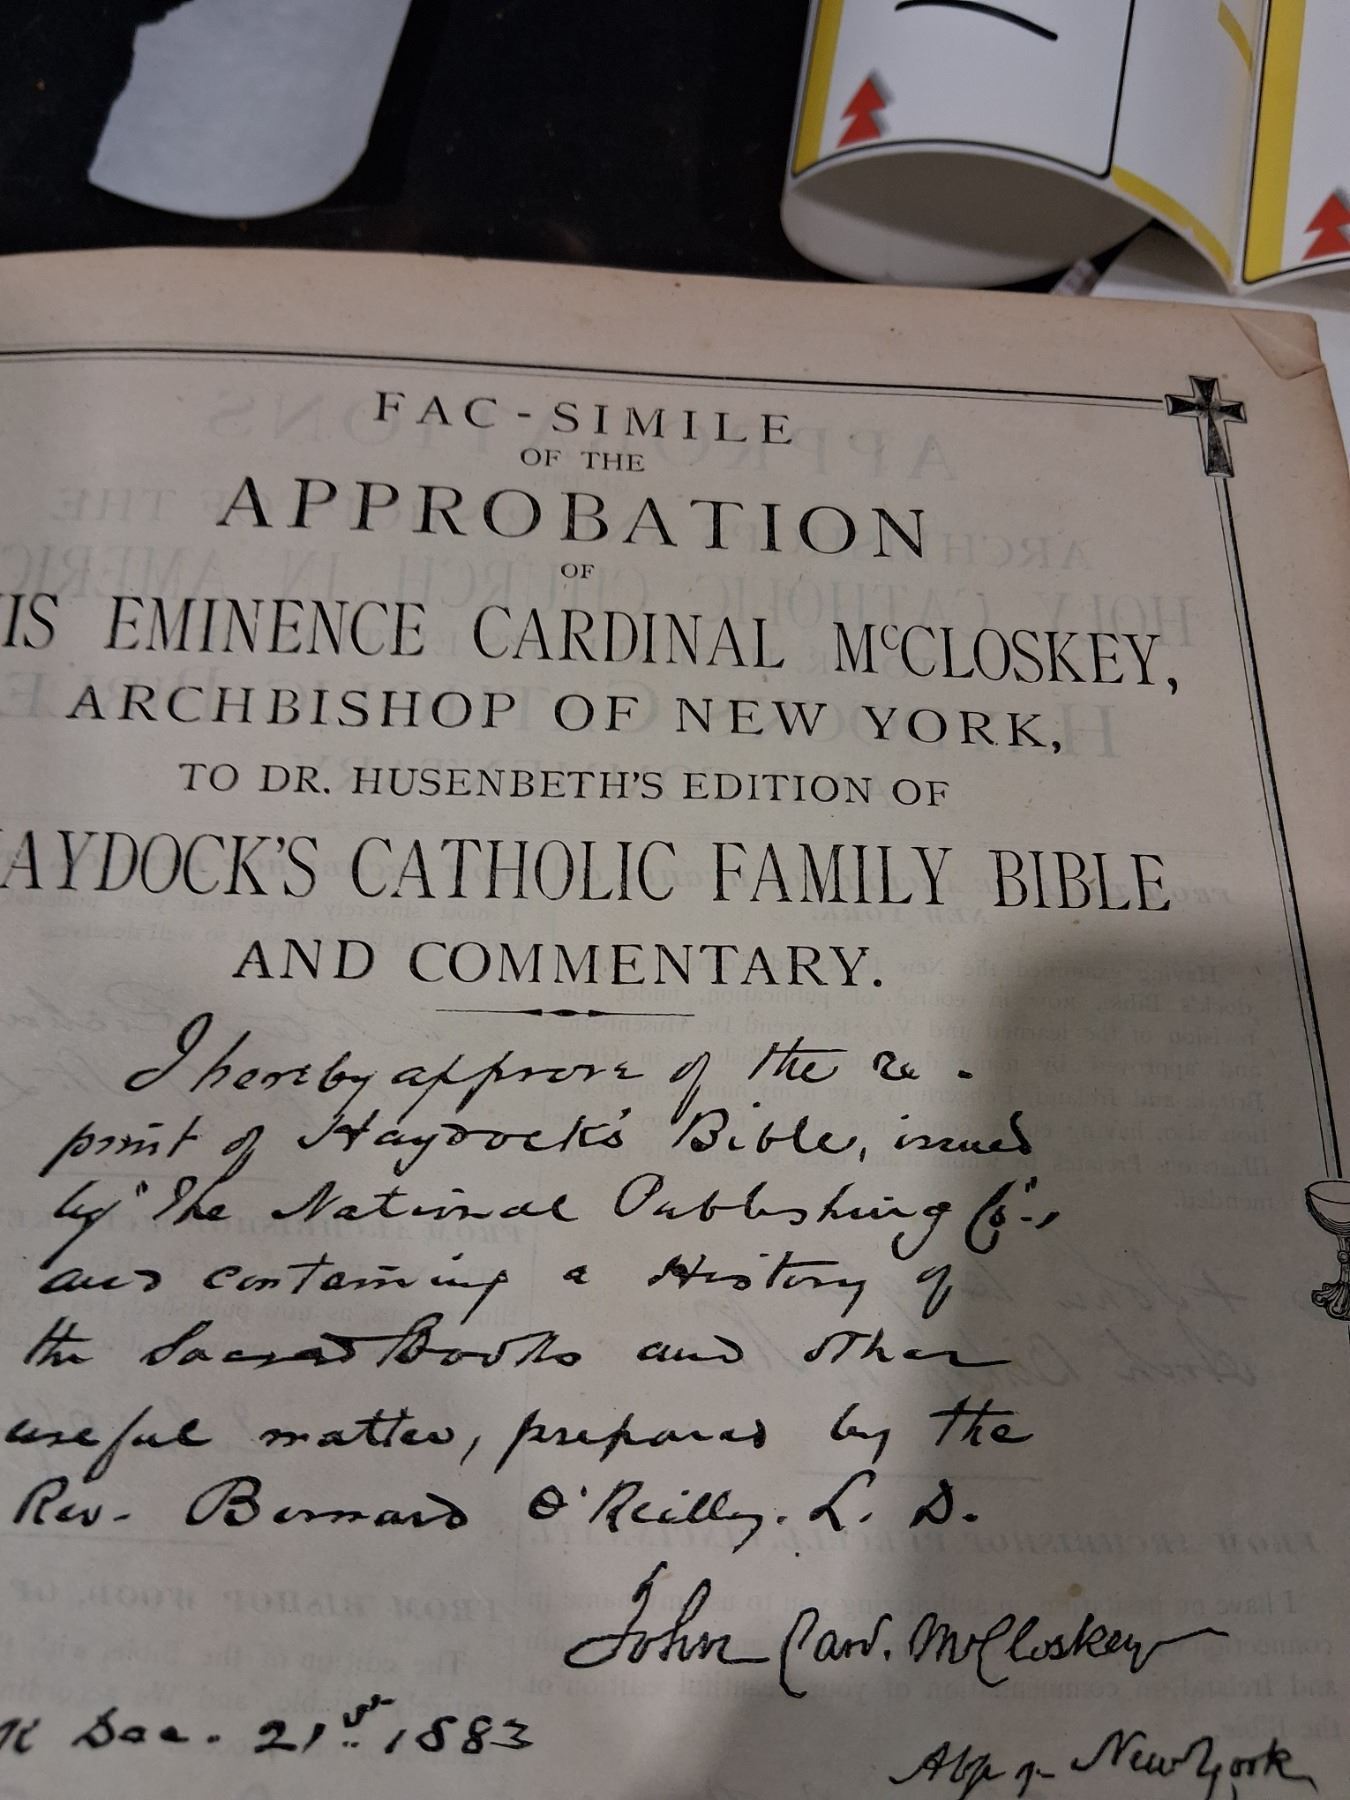 FAC-SIMILE
OF THE
APPROBATION
OF
IS EMINENCE CARDINAL McCLOSKEY,
ARCHBISHOP OF NEW YORK,
TO DR. HUSENBETH'S EDITION OF
AYDOCK'S CATHOLIC FAMILY BIBLE
AND COMMENTARY.
I hereby approve of the re-
print of Haydock's Bible, issued
by "The National Publishing Co.",
and containing a History of
the Sacred Books and other
useful matter, prepared by the
Rev. Bernard O'Reilly. L. D.
John Card. McCloskey
K Dec. 21st, 1883
Abp of New York